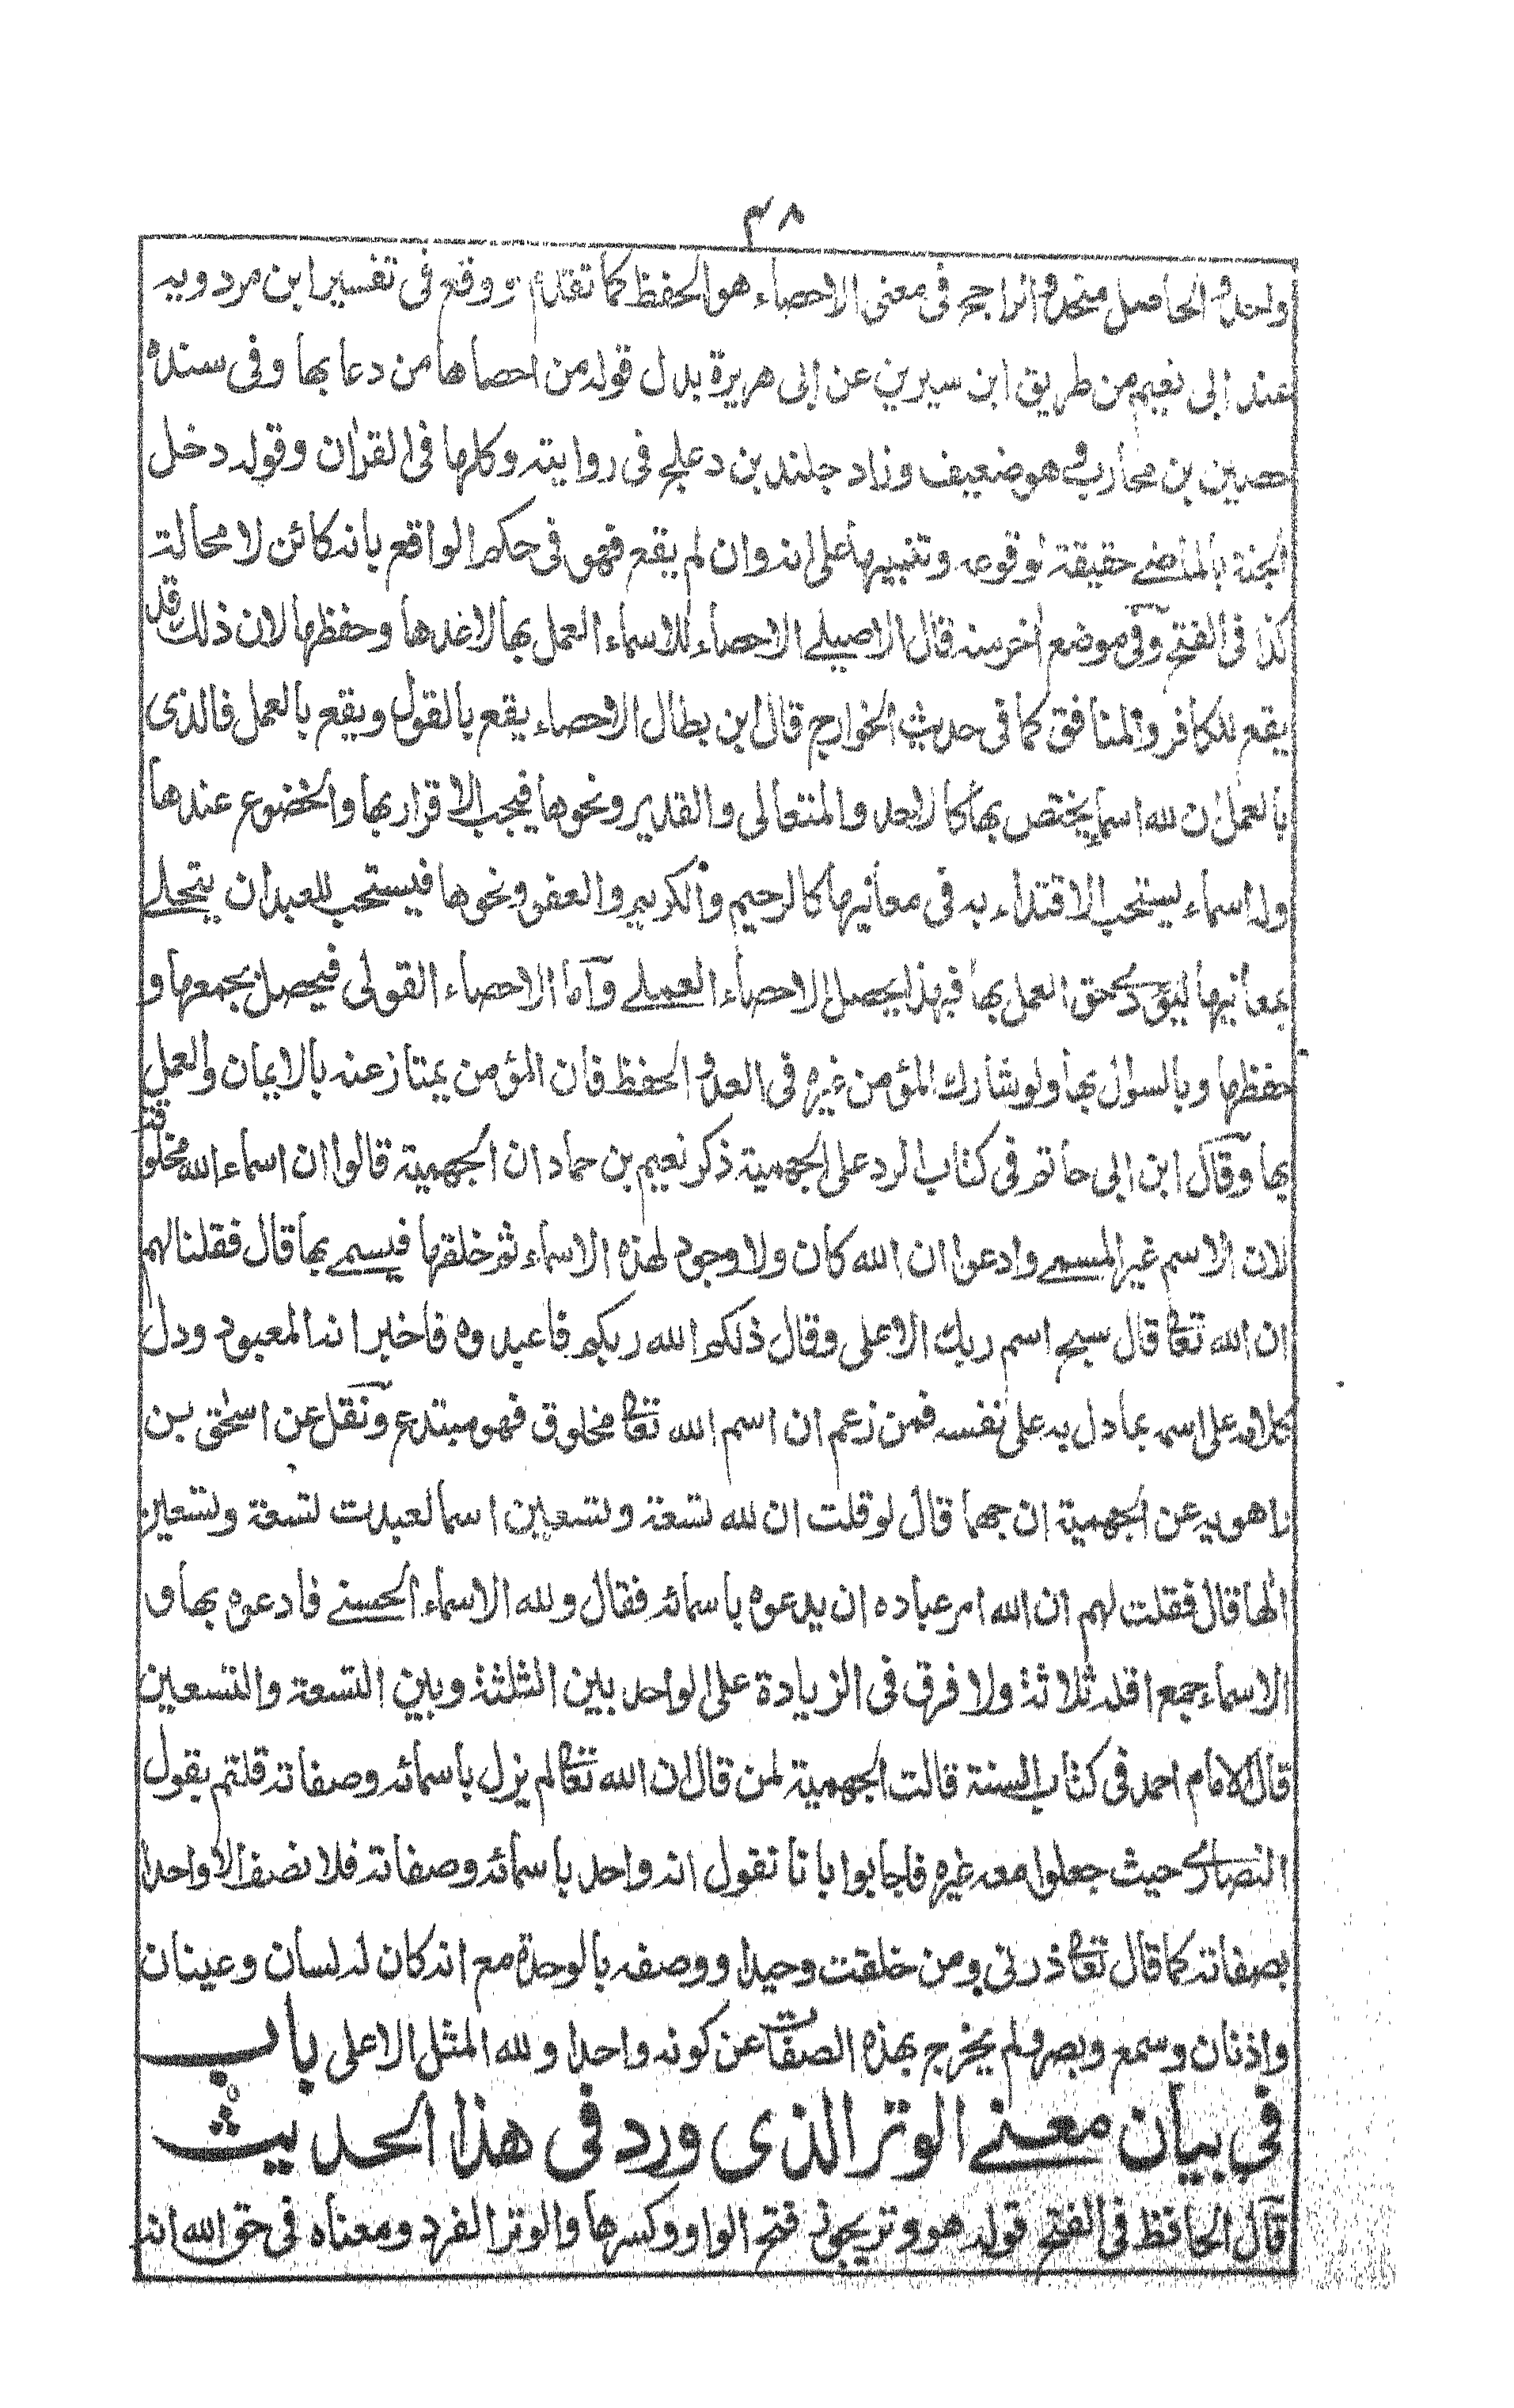 ٣٨
واحد و الحاصل متحد والراجح فى معنى الاحصاء هو الحفظ كما تقدم ووقع فى تفسير ابن مردويه
عند ابى نعيم من طريق ابن سيرين عن ابى هريرة بدل قوله من احصاها من دعا بها وفى سنده
حصين بن مخارق وهو ضعيف وزاد خليد بن دعلج فى روايته وكلها فى القران وقوله دخل
الجنة بالماضى حقيقة لوقوعه وتنبيها على انه وان لم يقع فهو فى حكم الواقع بانه كائن لا محالة
كذا فى الفتح وفى موضع اخر منه قال الاصيلى الاحصاء للاسماء العمل بها لا عدها وحفظها لان ذلك قد
يقع للكافر والمنافق كما فى حديث الخوارج قال ابن بطال الاحصاء يقع بالقول ويقع بالعمل فالذى
بالعمل ان لله اسما يختص بها كالاحد والمتعالى والقدير ونحوها فيجب الاقرار بها والخضوع عندها
وله اسماء يستحب الاقتداء به فى معانيها كالرحيم والكريم والعفو ونحوها فيستحب للعبد ان يتحلى
بمعانيها ليؤدى حق العمل بها فبهذا يحصل الاحصاء العملى واما الاحصاء القولى فيحصل بجمعها و
حفظها وبالسوال بها ولو شارك المؤمن غيره فى العد والحفظ فان المؤمن يمتاز عنه بالايمان والعمل
بها وقال ابن ابى حاتم فى كتاب الرد على الجهمية ذكر نعيم بن حماد ان الجهمية قالوا ان اسماء الله مخلوقة
لان الاسم غير المسمى وادعوا ان الله كان ولا وجود لهذه الاسماء ثم خلقها فيسمى بها قال فقلنا لهم
ان الله تعالى قال سبح اسم ربك الاعلى وقال ذلكم الله ربكم فاعبدوه فاخبر انه المعبود ودل
كلامه على اسمه بما دل به على نفسه فمن زعم ان اسم الله تعالى مخلوق فهو مبتدع ونقل عن اسحٰق بن
راهويه عن الجهمية ان جهما قال لو قلت ان لله تسعة وتسعين اسما لعبدت تسعة وتسعين
الٰها قال فقلت لهم ان الله امر عباده ان يدعوه باسمائه فقال ولله الاسماء الحسنى فادعوه بها و
الاسماء جمع اقله ثلاثة ولا فرق فى الزيادة على الواحد بين الثلثة وبين التسعة والتسعين
قال الامام احمد فى كتاب السنة قالت الجهمية لمن قال ان الله تعالى لم يزل باسمائه وصفاته قلتم بقول
النصارى حيث جعلوا معه غيره فاجابوا بانا نقول انه واحد باسمائه وصفاته فلا نصف الا واحدا
بصفاته كما قال تعالى ذرنى ومن خلقت وحيدا ووصفه بالوحدة مع انه كان له لسان وعينان
واذنان وسمع وبصر ولم يخرج بهذه الصفات عن كونه واحدا ولله المثل الاعلى باب
فى بيان معنى الوتر الذى ورد فى هذا الحديث
قال الحافظ فى الفتح قوله هو وتر يجوز فتح الواو وكسرها والوتر الفرد ومعناه فى حق الله انه